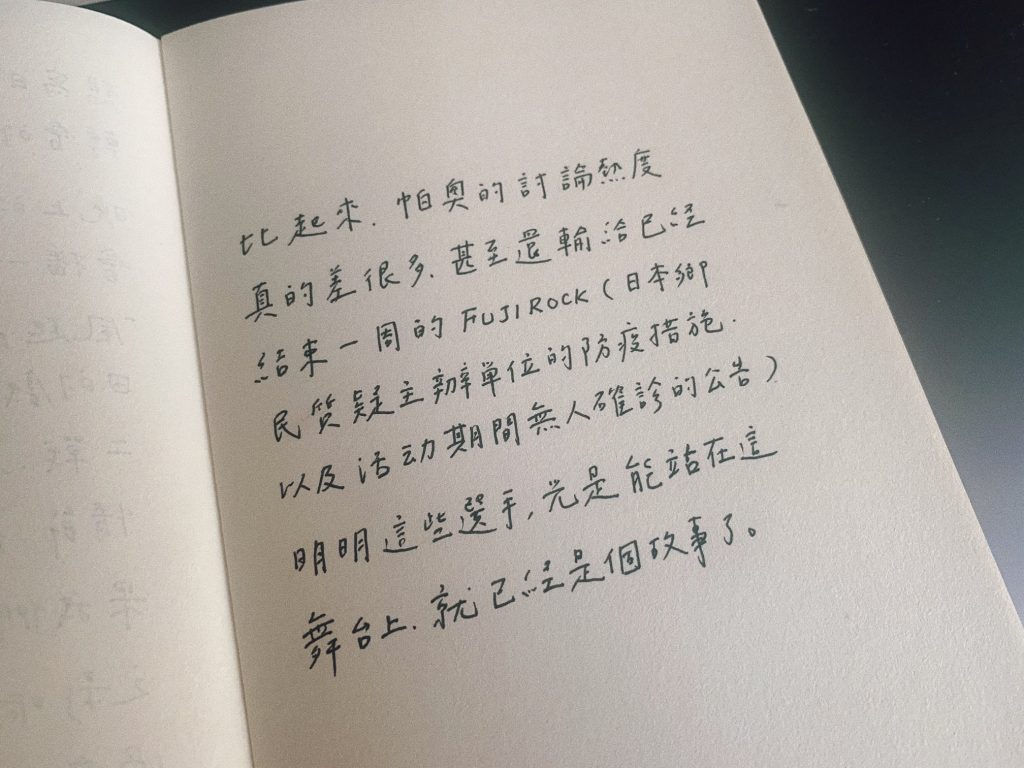 比起來、帕奧的討論熱度
真的差很多、甚至還輸給已经
結束一周的 FUJI ROCK（日本鄉
民質疑主辦單位的防疫措施、
以及活动期間無人確診的公告）
明明這些選手，光是能站在這
舞台上、就已經是個故事了。